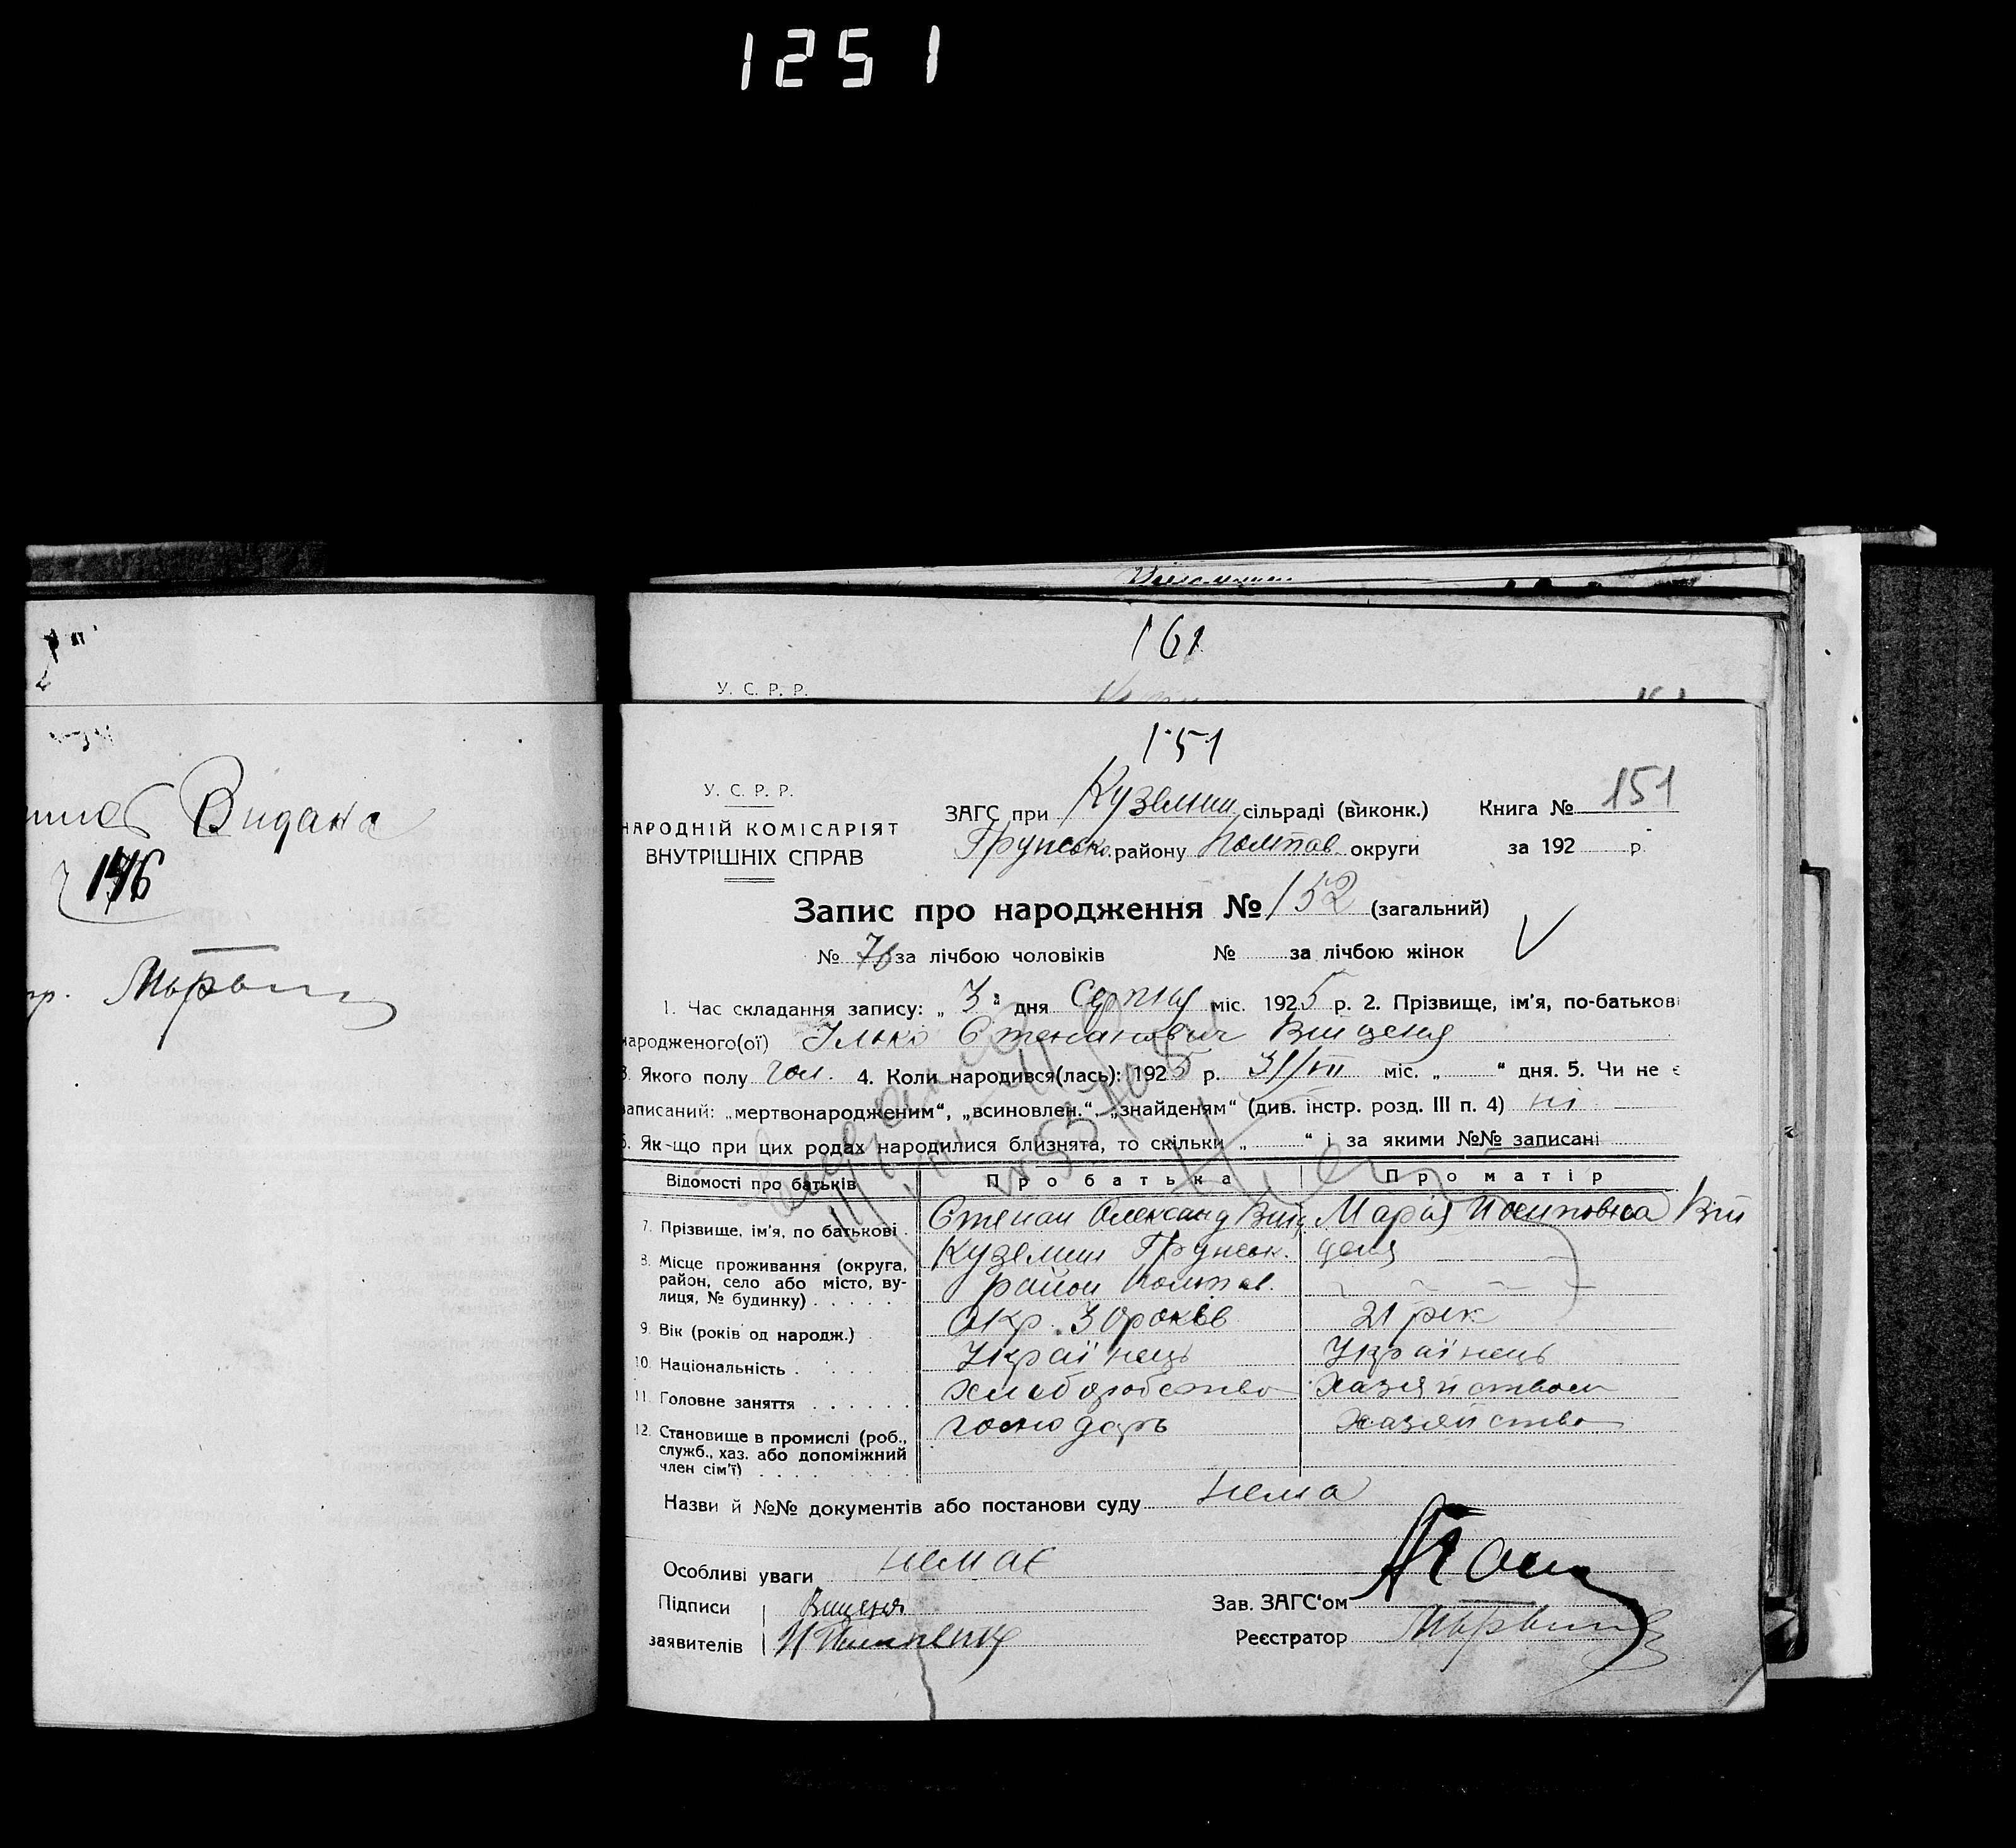 1251
161
У. С. Р. Р.
Видана
176
151
У. С. Р. Р.
НАРОДНІЙ КОМІСАРІЯТ
ВНУТРІШНІХ СПРАВ
ЗАГС при Куземин сільраді (виконк.) Книга № 151
Грунсько. району Полтав. округи за 192 р.
Запис про народження № 152 (загальний)
№ 76 за лічбою чоловіків № за лічбою жінок
1. Час складання запису: „ 3 " дня Серпня міс. 1925 р. 2. Прізвище, ім'я, по-батькові
народженого(ої) Ілько Степанович Віщеня
3. Якого полу чол. 4. Коли народився(лась): 1925 р. 31/VII міс. „ “ дня. 5. Чи не є
записаний: „мертвонародженим“, „всиновлен.“, „знайденям“ (див. інстр. розд. III п. 4) ні
6. Як-що при цих родах народилися близнята, то скільки „ “ і за якими №№ записані
Відомості про батьків Про батька Про матір
7. Прізвище, ім'я, по батькові Степан Олександ Віщ Марія Иосиповна Віщ
8. Місце проживання (округа, Куземин Грунськ. целя
район, село або місто, ву- район Полтав.
лиця, № будинку) окр.
9. Вік (років од народж.) 30 років 21 рік
10. Національність Українець Українець
11. Головне заняття хлеборобство Хазяйством
12. Становище в промислі (роб., господарь хазяйство
служб., хаз. або допоміжний
член сім'ї)
Назви й №№ документів або постанови суду нема
Особливі уваги немає
Підписи Віщеня Зав. ЗАГС‘ом
заявителів Реєстратор